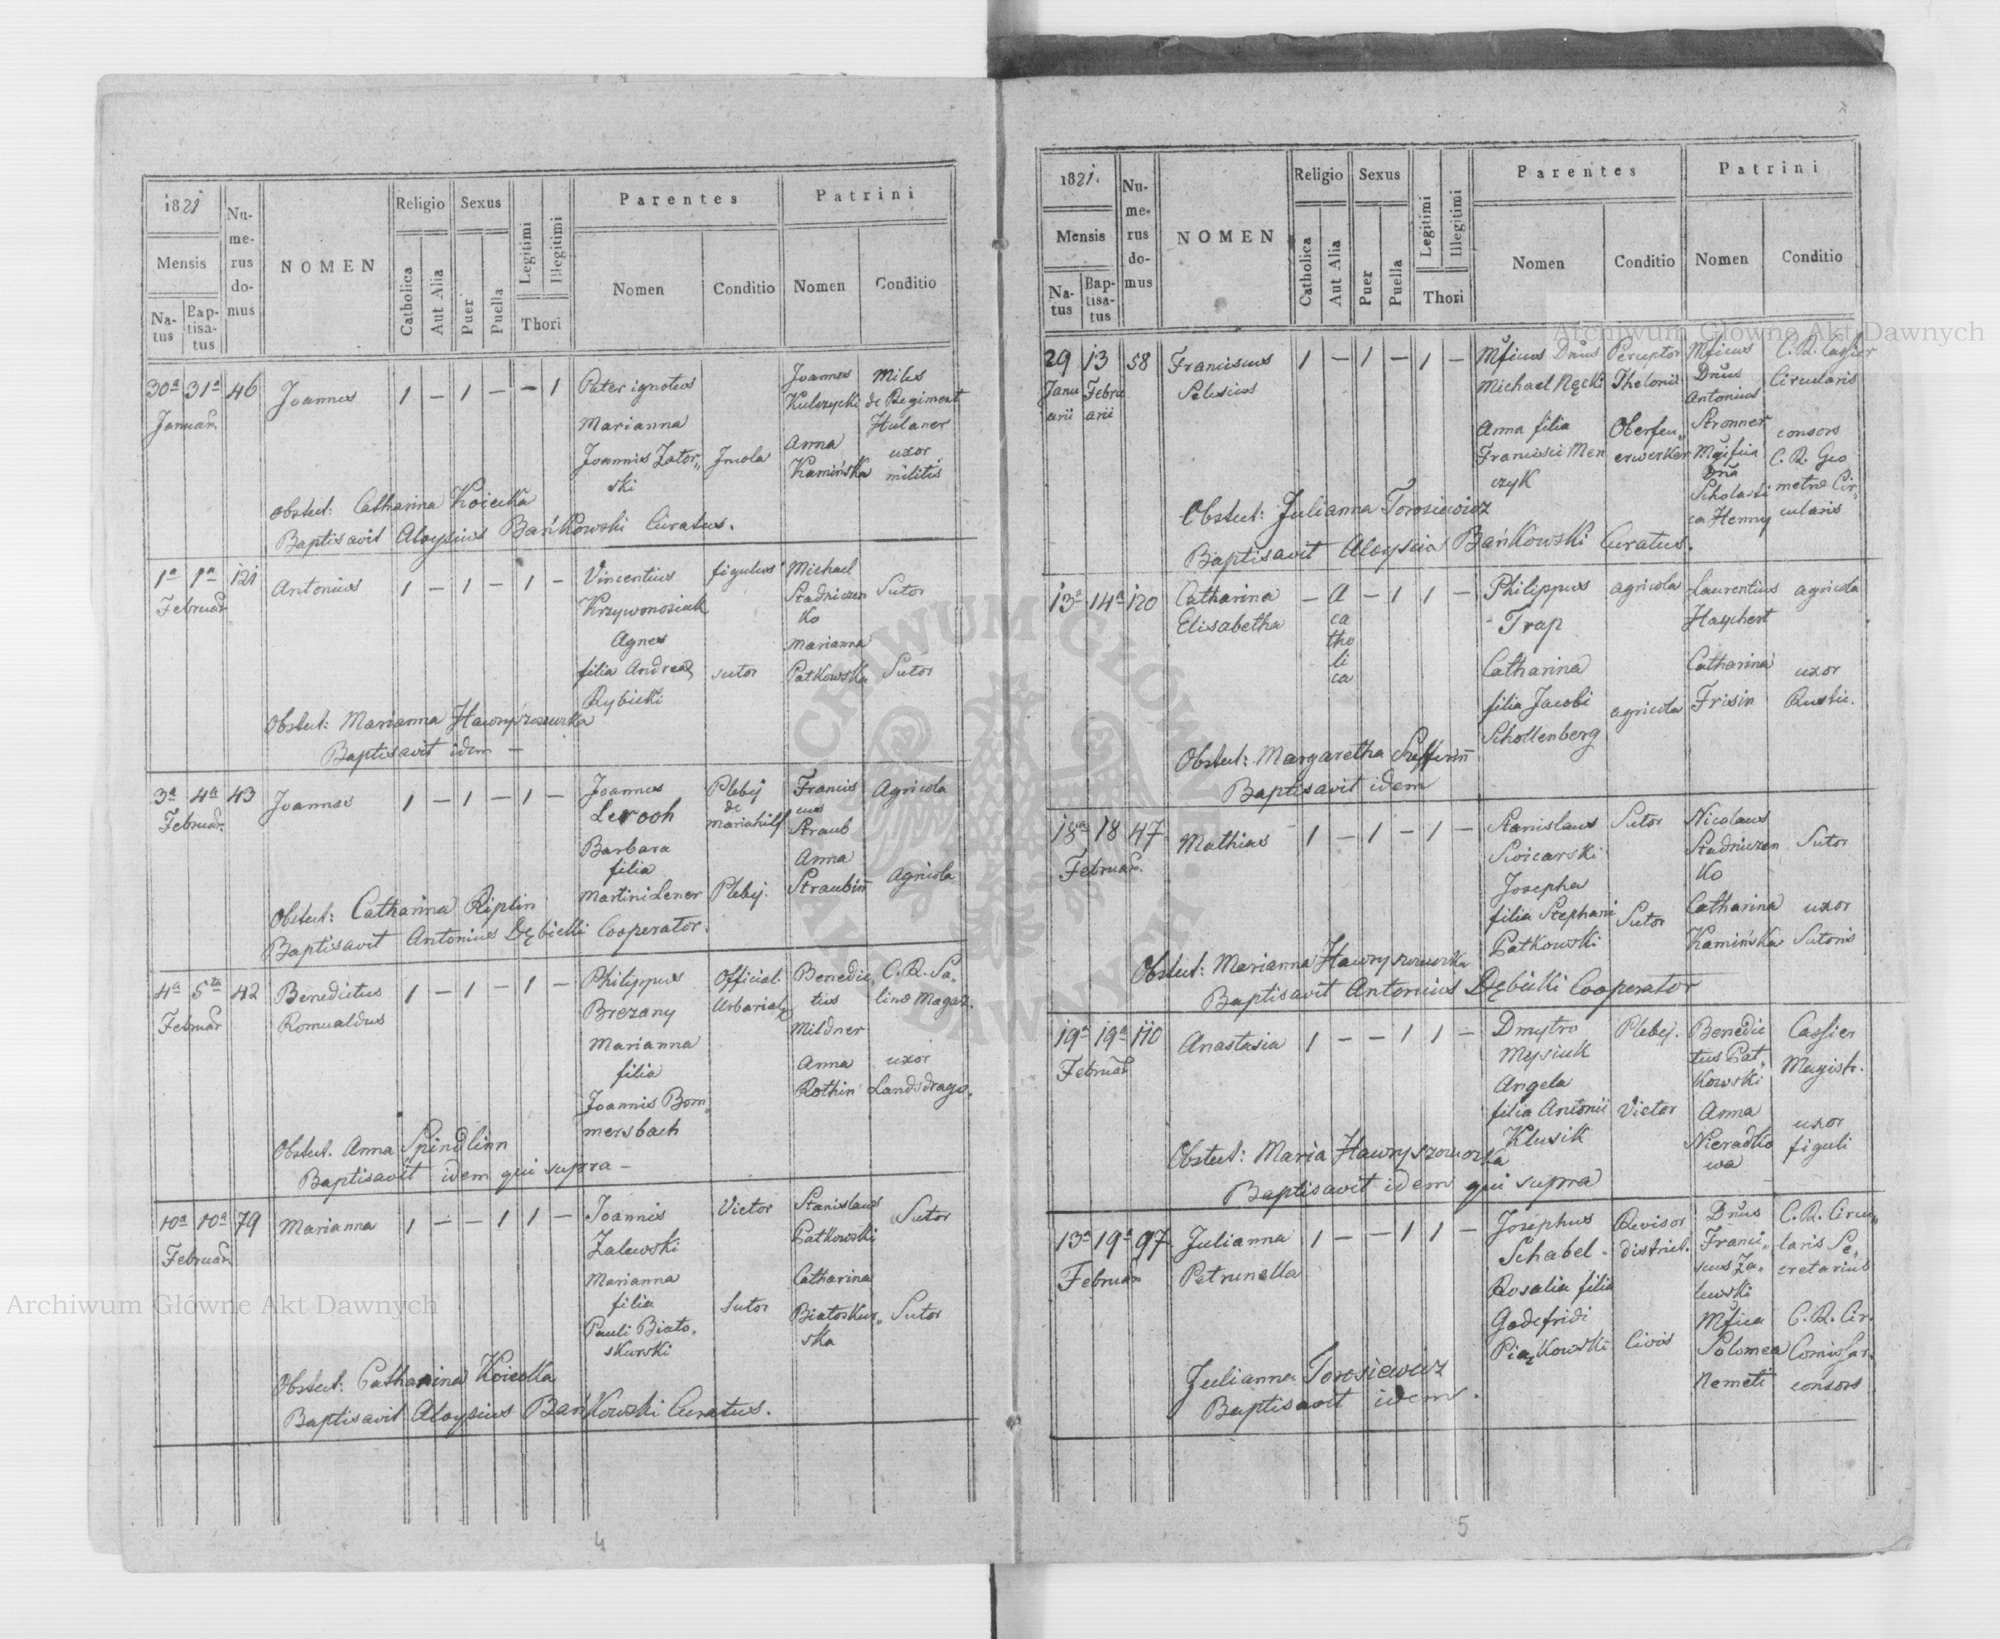 1821
Mensis
Na-
tus
Bap-
tisa-
tus
Nu-
me-
rus
do-
mus
NOMEN
Religio
Catholica
Aut Alia
Sexus
Puer
Puella
Legitimi
Illegitimi
Thori
Parentes
Nomen
Conditio
Patrini
Nomen
Conditio
30a 31a 46 Joannes 1 – 1 – – 1
Januar.
Pater ignotus
Marianna
Joannis Zator„
ski
Incola
Joannes
Kulczycki
Anna
Kamińska
Miles
de Regiment
Hulaner
uxor
militis
Obstet: Catharina Koicka
Baptisavit Aloysius Bańkowski Curatus.
1a 1a 121 Antonius 1 – 1 – 1 –
Februar
Vincentius
Krzywonosiuk
Agnes
filia Andreae
Rybicki
figulus
sutor
Michael
Stadniczen
ko
Marianna
Patkowska
Sutor
Sutor
Obstet: Marianna
Baptisavit idem –
3a 4a 43 Joannes 1 – 1 – 1 –
Februar.
Joannes
Lerooh
Barbara
filia
Martini Lener
Plebej
de
Mariahilf
Plebej.
Francis
cus
Straub
Anna
Straubin
Agricola
Agricola
Obstet: Catharina Riplin
Baptisavit Antonius Dębicki Cooperator.
4a 5ta 42 Benedictus 1 – 1 – 1 –
Februar
Romualdus
Philippus
Brezany
Marianna
filia
Joannis Bom„
mersbach
Official.
Urbarial
Benedic„
tus
Mildner
Anna
Rothin
C. R. Sa„
lino Magaz.
uxor
Landsdrago.
Obstet. Anna Spindlinn
Baptisavit idem qui supra –
10a 10a 79 Marianna 1 – – 1 1 –
Februar.
Joannis
Zalewski
Marianna
filia
Pauli Biało„
skurski
Victor
Sutor
Stanislaus
Patkowski
Catharina
Białoskur„
ska
Sutor
Sutor
Obstet: Catharina Koicka
Baptisavit Aloysius Bańkowski Curatus.
4
1821.
Mensis
Na-
tus
Bap-
tisa-
tus
Nu-
me-
rus
do-
mus
NOMEN
Religio
Catholica
Aut Alia
Sexus
Puer
Puella
Legitimi
Illegitimi
Thori
Parentes
Nomen
Conditio
Patrini
Nomen
Conditio
29 13 58 Franciscus 1 – 1 – 1 –
Janu
arii
Febru
arii
Salesius
Mficus Dnus
Michael Nęcki
Anna filia
Francisci Men
czyk
Perceptor
Thelonii
Oberfeu„
erwerker
Mficus
Dnus
Antonius
Stronner
Mgifica
Dna
Scholasti
ca Henny
C. R. Cassier
Circularis
consors
C. R. Geo
metrae Cir„
cularis
Obstet: Julianna Torosiewicz
Baptisavit Aloysius Bańkowski Curatus.
13a 14a 120 Catharina – A – 1 1 –
Elisabetha
ca
tho
li
ca
Philippus
Trap
Catharina
filia Jacobi
Schollenberg
agricola
agricola
Laurentius
Haychert
Catharina
Frisin
agricola
uxor
Rustic.
Obstet: Margaretha
Baptisavit idem
18a 18 47 Mathias 1 – 1 – 1 –
Februar.
Stanislaus
Swicarski
Josepha
filia Stephani
Patkowski
Sutor
Sutor
Nicolaus
Stadniczen
ko
Catharina
Kamińska
Sutor
uxor
Sutoris
Obstet: Marianna
Baptisavit Antonius Dębicki Cooperator
19a 19a 110 Anastasia 1 – – 1 1 –
Februar
Dmytro
Mysiuk
Angela
filia Antonii
Klusik
Plebej.
Victor
Benedic
tus Pat„
kowski
Anna
Nieradko
wa
Cassier
Magistr.
uxor
figuli
Obstet: Maria
Baptisavit idem qui supra
13a 19a 97 Julianna 1 – – 1 1 –
Februar
Petrunella
Josephus
Schabel
Rosalia filia
Godefridi
Piąkowski
Revisor
district.
Civis
Dnus
Franci„
scus Za„
lewski
Mfica
Solomea
Nemeti
C. R. Circu„
laris Se„
cretarius
C. R. Cir.
Comissar.
consors
Julianna Torosiewicz
Baptisavit idem.
5
Archiwum Główne Akt Dawnych
Archiwum Główne Akt Dawnych
ARCHIWUM GŁÓWNE AKT DAWNYCH